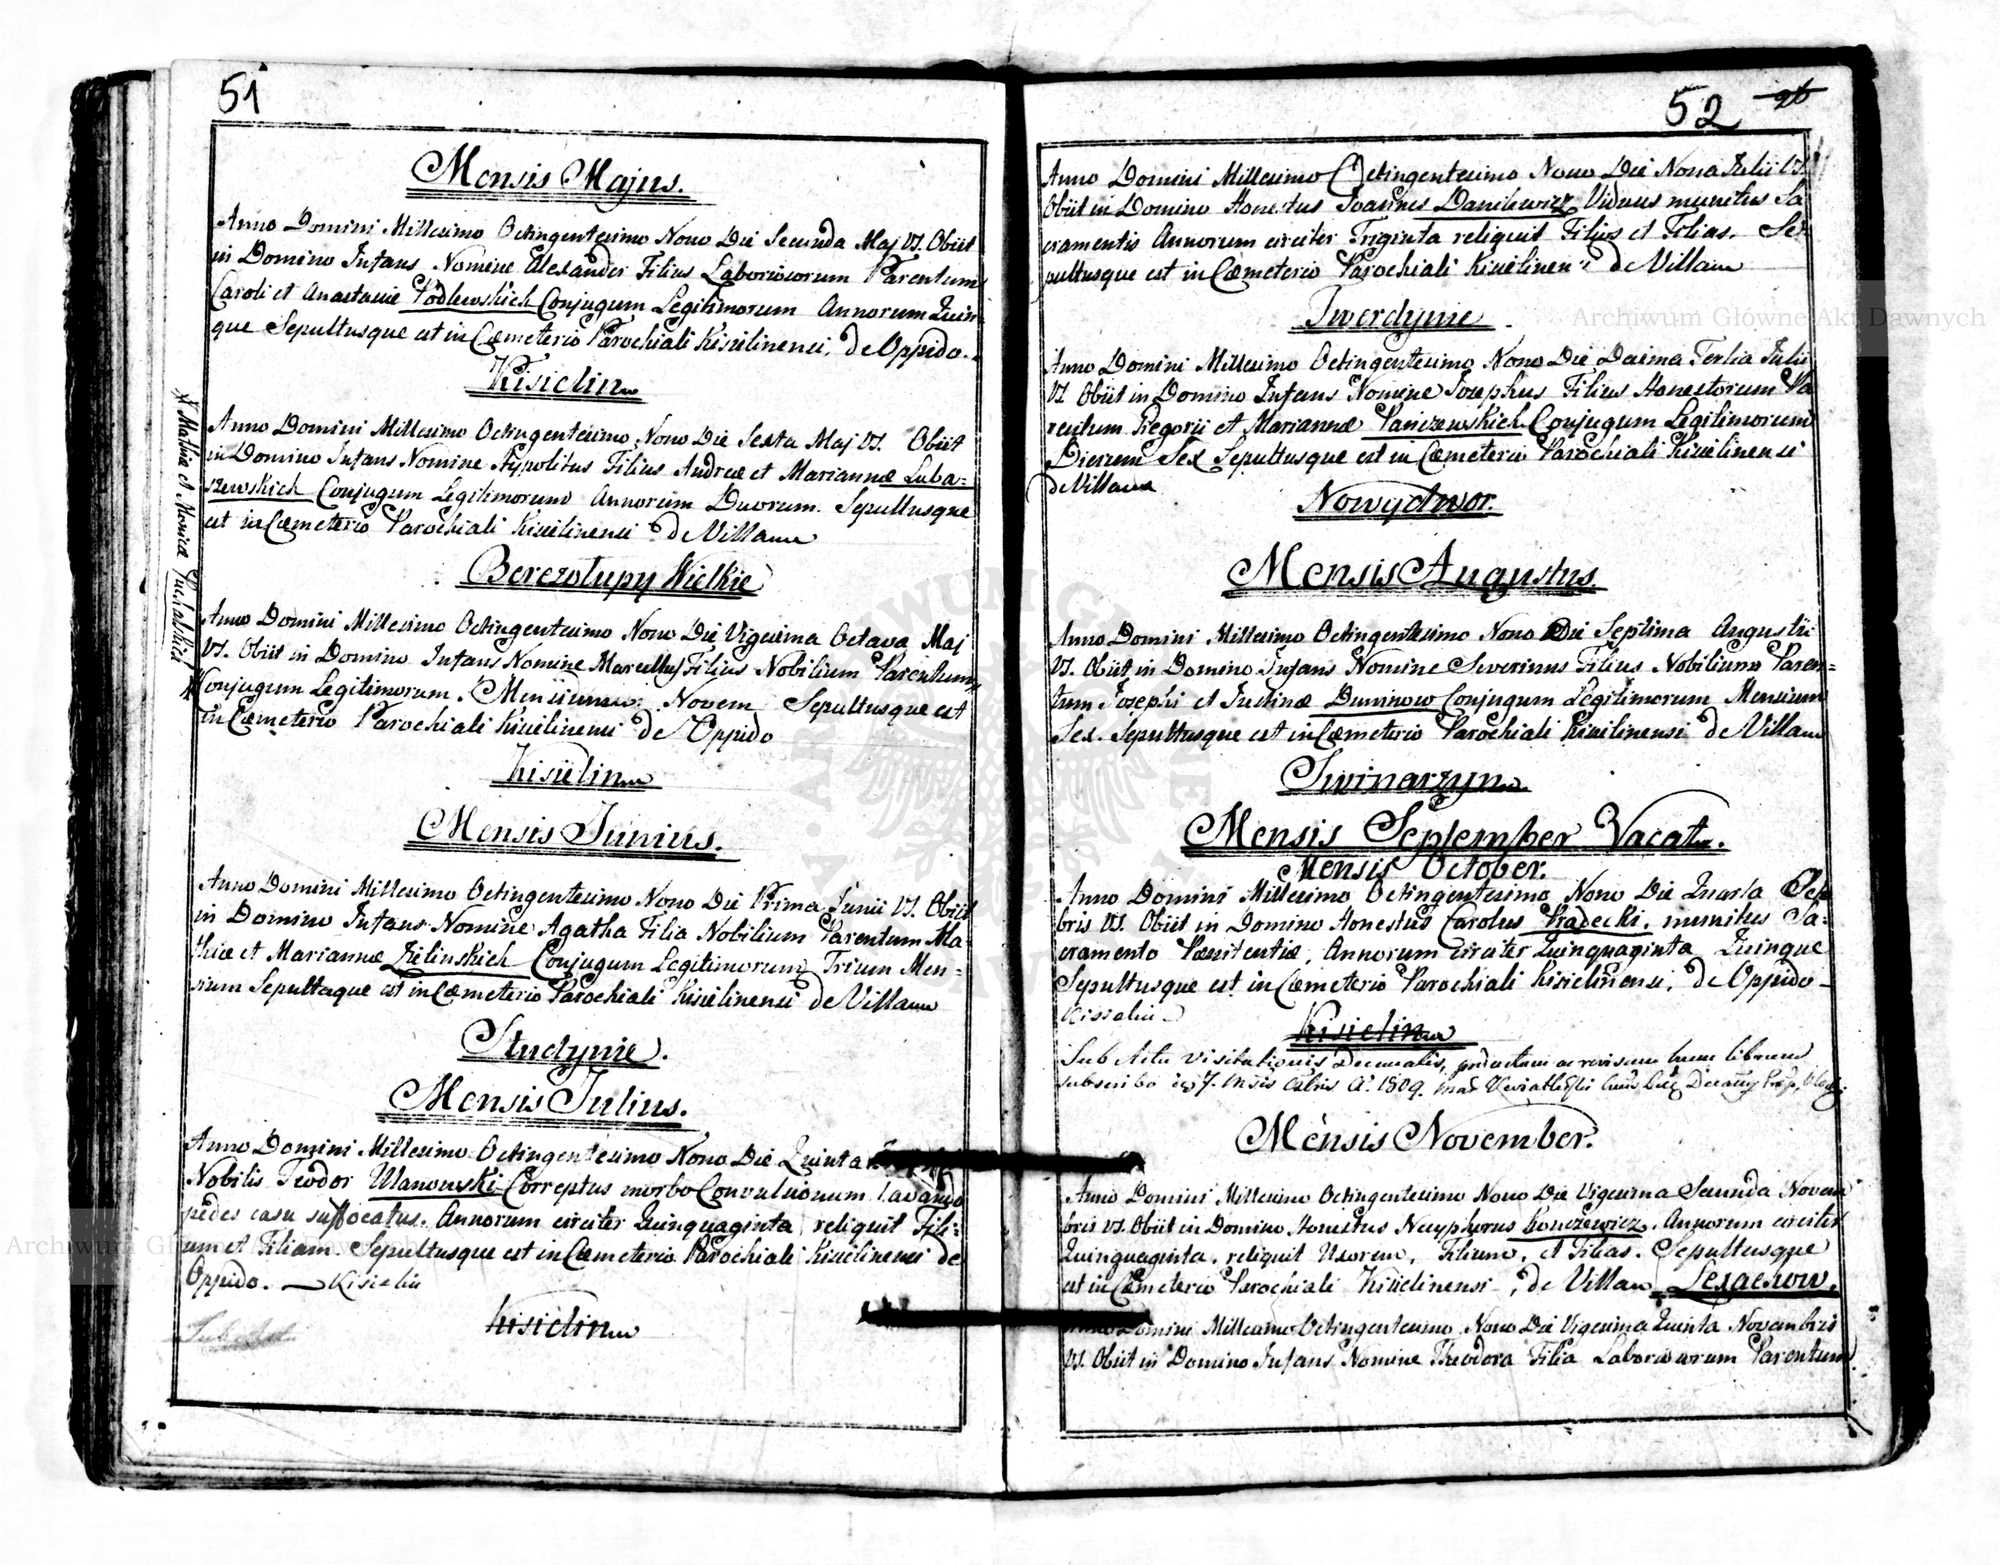 51
Mensis Majus.
Anno Domini Millesimo Octingentesimo Nono Die Secunda Maj VS. Obiit
in Domino Infans Nomine Alexander Filius Laboriosorum Parentum
Caroli et Anastasiæ Podlewskich Conjugum Legitimorum Annorum Quin
que Sepultusque est in Cœmeterio Parochiali Kisielinensi, de Oppido.
Kisielin
Anno Domini Millesimo Octingentesimo Nono Die Sexta Maj VS. Obiit
in Domino Infans Nomine Hypolitus Filius Andreæ et Mariannæ Luba=
szewskich Conjugum Legitimorum Annorum Duorum. Sepultusque
est in Cœmeterio Parochiali Kisielinensi de Villa
Berezolupy Wielkie
Anno Domini Millesimo Octingentesimo Nono Die Vigesima Octava Maj
VS. Obiit in Domino Infans Nomine Marcellus Filius Nobilium Parentum
Conjugum Legitimorum. Mensium Novem Sepultusque est
in Cœmeterio Parochiali Kisielinensi de Oppido
Kisielin
Mathiæ et Monicæ Puchalskich
Mensis Junius.
Anno Domini Millesimo Octingentesimo Nono Die Prima Junii VS. Obiit
in Domino Infans Nomine Agatha Filia Nobilium Parentum Ma=
thiæ et Mariannæ Zielinskich Conjugum Legitimorum Trium Men=
sium Sepultaque est in Cœmeterio Parochiali Kisielinensi de Villa
Studynie.
Mensis Julius.
Anno Domini Millesimo Octingentesimo Nono Die Quinta
Nobilis Teodor Ulanowski Correptus morbo Convulsionum lavando
pedes casu suffocatus. Annorum circiter Quinquaginta reliquit Fili=
um et Filiam Sepultusque est in Cœmeterio Parochiali Kisielinensi de
Oppido. Kisielin
Kisielin
52 26
Anno Domini Millesimo Octingentesimo Nono Die Nona Julii VS.
Obiit in Domino Honestus Joannes Danilewicz Viduus munitus Sa
cramentis Annorum circiter Triginta reliquit Filios et Filias. Se=
pultusque est in Cœmeterio Parochiali Kisielinensi de Villa
Twerdynie
Anno Domini Millesimo Octingentesimo Nono Die Decima Tertia Julii
VS. Obiit in Domino Infans Nomine Josephus Filius Honestorum Pa
rentum Gregorii et Mariannæ Paniczewskich Conjugum Legitimorum
Dierum Sex Sepultusque est in Cœmeterio Parochiali Kisielinensi
de Villa
Nowydwor.
Mensis Augustus.
Anno Domini Millesimo Octingentesimo Nono Die Septima Augustii
VS. Obiit in Domino Infans Nomine Severinus Filius Nobilium Paren=
tum Josephi et Justinæ Duninow Conjugum Legitimorum Mensium
Sex. Sepultusque est in Cœmeterio Parochiali Kisielinensi de Villa
Swinarzyn
Mensis September Vacat.
Mensis October.
Anno Domini Millesimo Octingentesimo Nono Die Quarta Octo
bris VS. Obiit in Domino Honestus Carolus Pradecki, munitus Sa=
cramento Pœnitentiæ, Annorum circiter Quinquaginta Quinque
Sepultusque est in Cœmeterio Parochiali Kisielinensi, de Oppido
Kisielin
Kisielin
Sub Actu Visitationis Decanalis, productum ac revisum hunc librum
subscribo 1809.
Mensis November.
Anno Domini Millesimo Octingentesimo Nono Die Vigesima Secunda Novem
bris VS. Obiit in Domino Honestus Nicyphorus Konczewicz Annorum circiter
Quinquaginta, reliquit Uxorem, Filium, et Filias. Sepultusque
est in Cœmeterio Parochiali Kisielinensi, de Villa
Anno Domini Millesimo Octingentesimo Nono Die Vigesima Quinta Novembris
VS. Obiit in Domino Infans Nomine Theodora Filia Laboriosorum Parentum
Archiwum Główne Akt Dawnych
Archiwum Główne Akt Dawnych